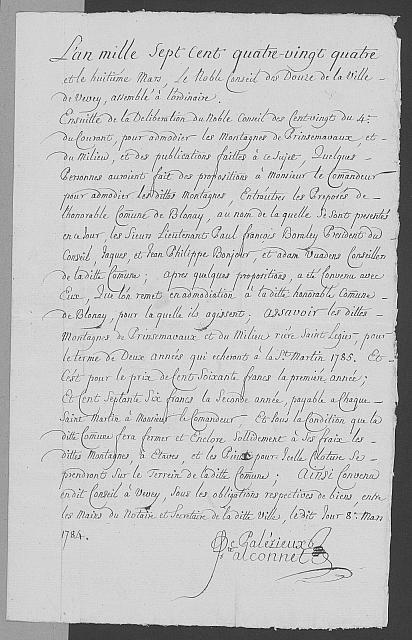 L'an mille Sept Cent quatre-vingt quatre
et le huitième Mars, Le Noble Conseil des Douze de la Ville
de Vevey, assemblé à l'ordinaire.
Ensuitte de la Deliberation du Noble Conseil des Cent-vingt du 4e.
du Courant, pour admodier les Montagnes de Prinsemavaux, et
du Milieu, et des publications faittes à ce Sujet, Quelques
Personnes auroient fait des propositions à Monsieur le Comandeur
pour admodier les dittes Montagnes, Entr'autres les Preposés de
l'honorable Comune de Blonay, au nom de la quelle Se Sont presentés
en ce Jour, les Sieurs Lieutenant Paul François President du
Conseil, Jaques, et Jean Philippe Bonjour, et adam Vuadens Conseillers
de la ditte Comune; apres quelques propositions, a été Convenu avec
Eux, Que l'on remet en admodiation à la ditte honorable Comune
de Blonay, pour la quelle ils agissent; assavoir les dittes
Montagnes de Prinsemavaux et du Milieu riére Saint Legier, pour
le terme de Deux années qui echeront à la St. Martin 1785. Et
C'est pour le prix de Cent Soixante francs la premiere année;
Et Cent Septante Six francs la Seconde année, payable a Chaque
Saint Martin à Monsieur le Comandeur, Et sous la Condition que la
ditte Comune fera fermer et Enclore Sollidement à Ses fraix les
dittes Montagnes, à Etaves et les pour Icelle Cloture Se
prendront Sur le Terrein de la ditte Comune; Ainsi Convenu
en dit Conseil à Vevey, sous les obligations respectives de biens, entre
les Mains du Notaire et Secretaire de la ditte Ville, le dit Jour 8e. Mars
1784.
De Palézieux
falconnet